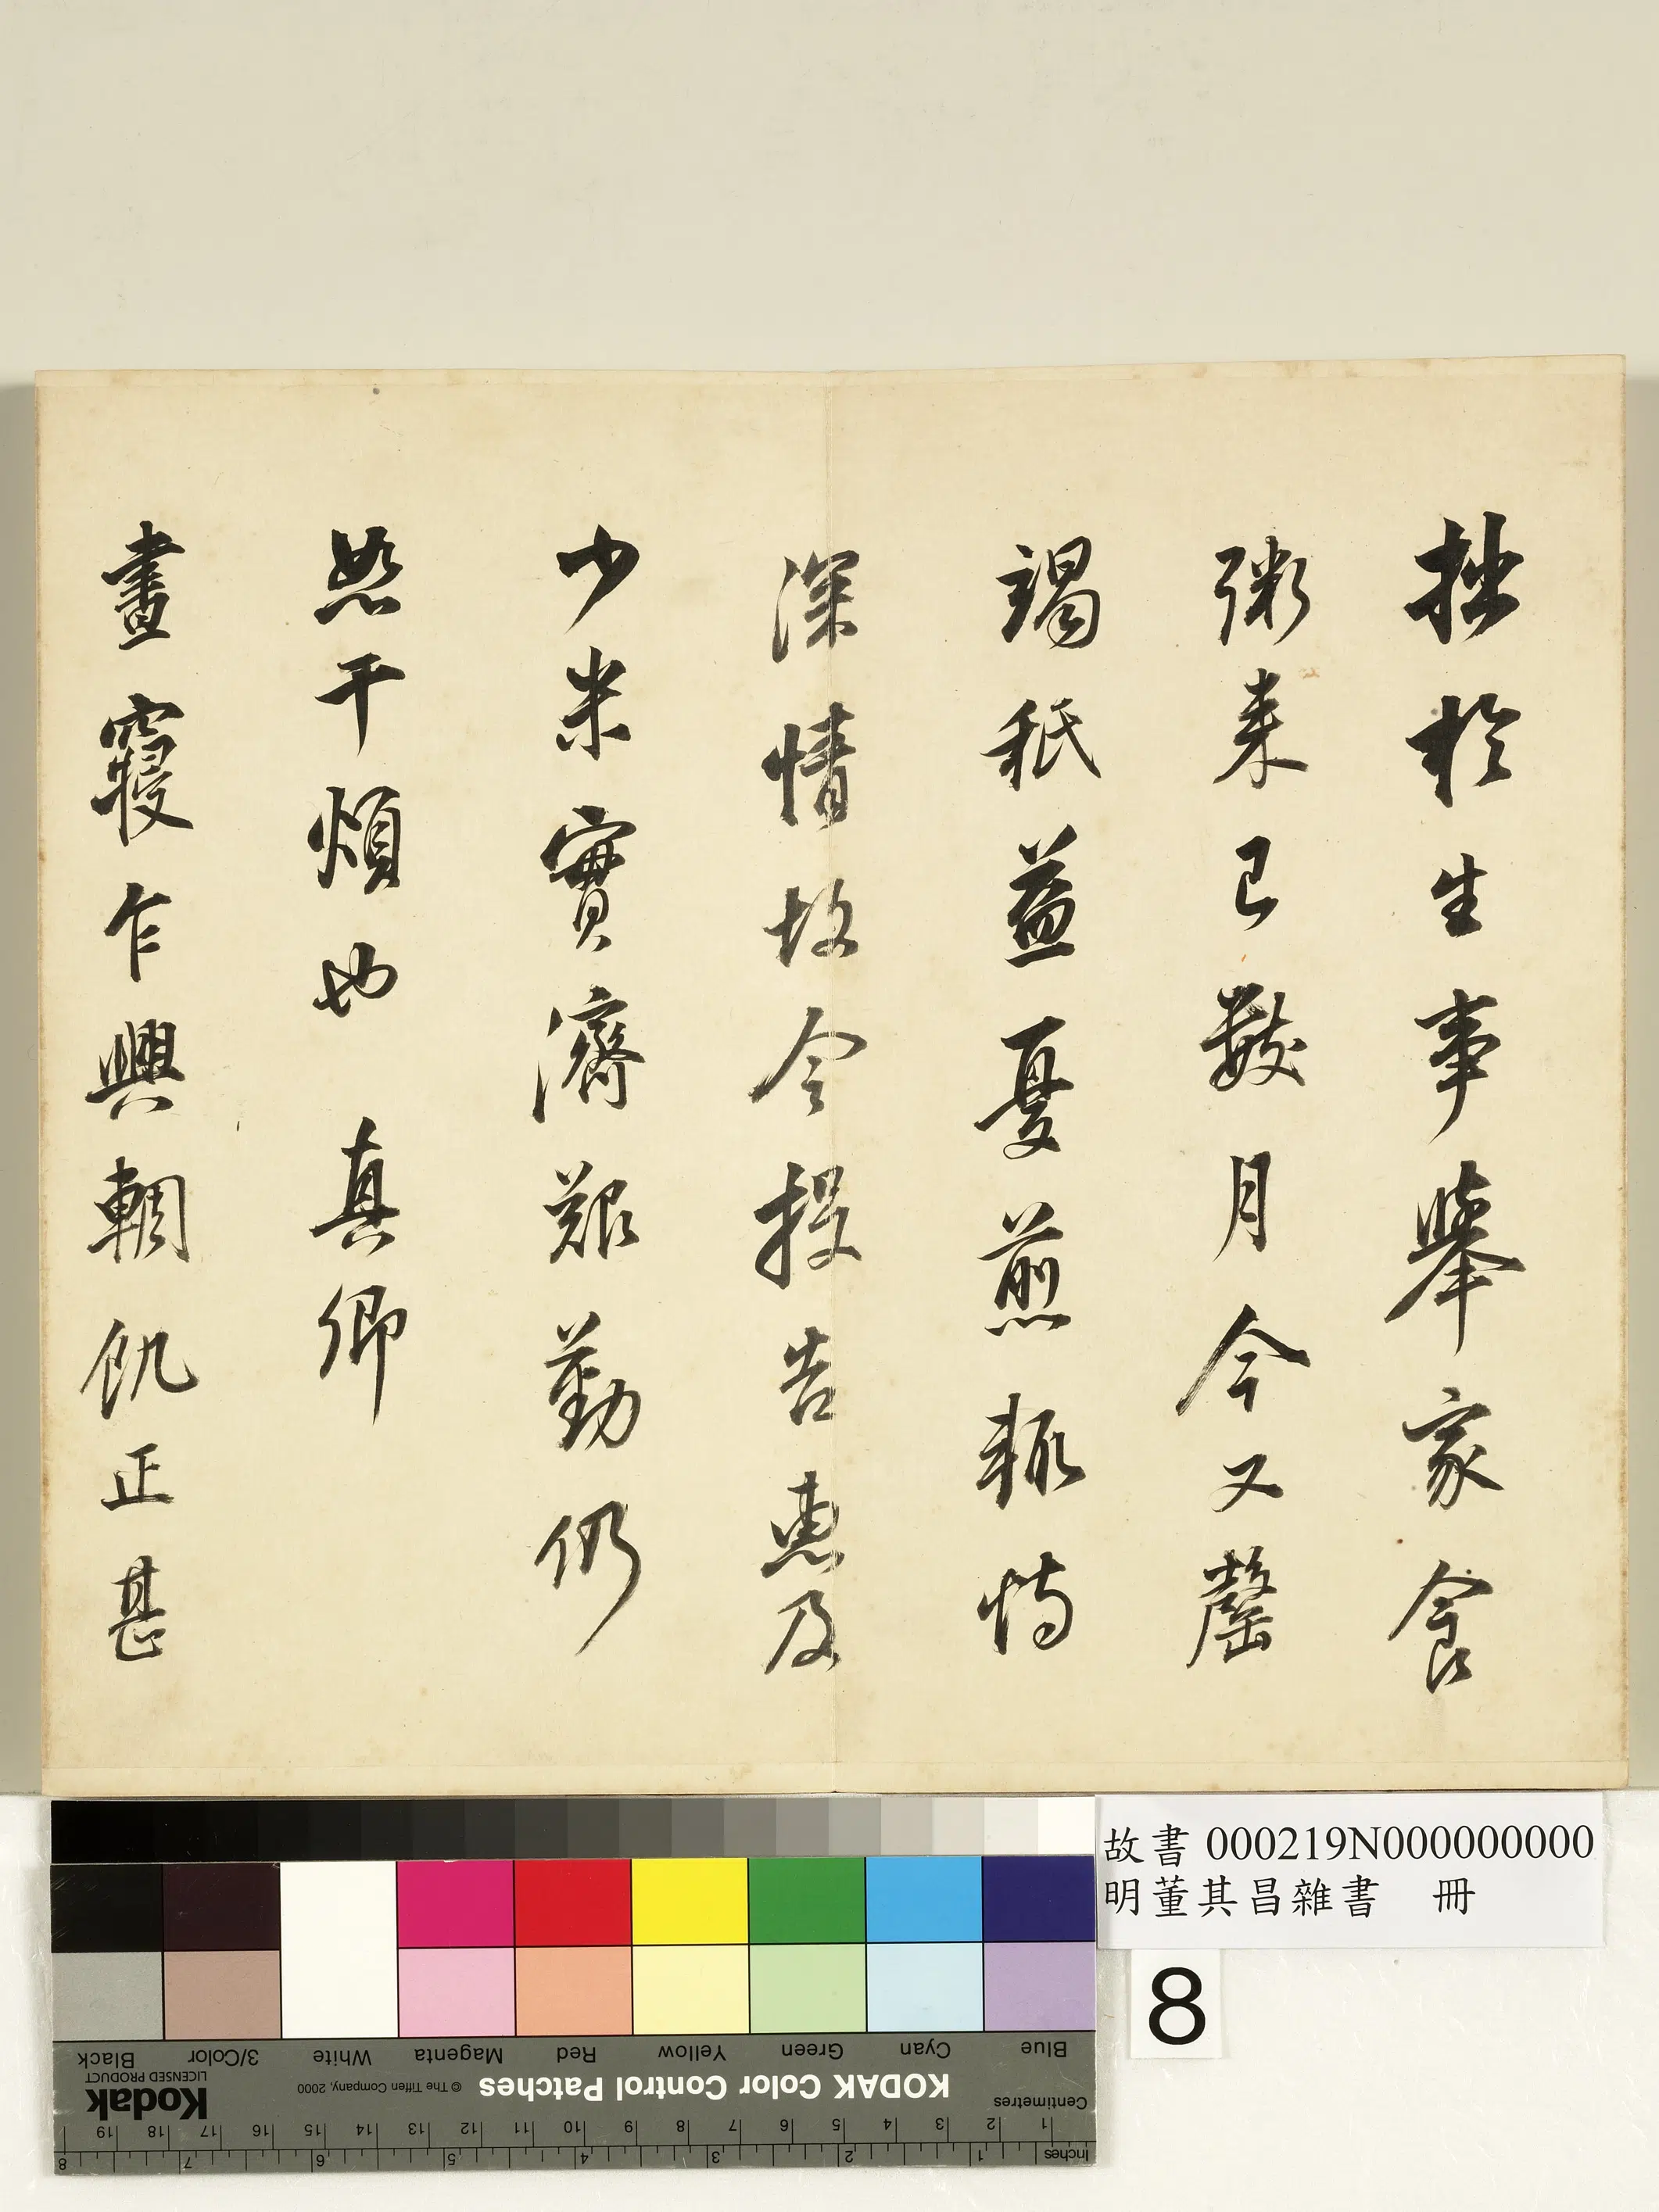 拙於生事舉家食
粥来已數月今又罄
竭秖益憂煎輒恃
深情故令投告惠及
少米實濟艱勤仍
恕干煩也 真卿
晝寢乍興輖飢正甚
故書 000219N000000000
明董其昌雜書 冊
8
Blue Cyan Green Yellow Red Magenta White 3/Color Black
KODAK Color Control Patches © The Tiffen Company, 2000 Kodak
LICENSED PRODUCT
Centimetres 1 2 3 4 5 6 7 8 9 10 11 12 13 14 15 16 17 18 19
Inches 1 2 3 4 5 6 7 8